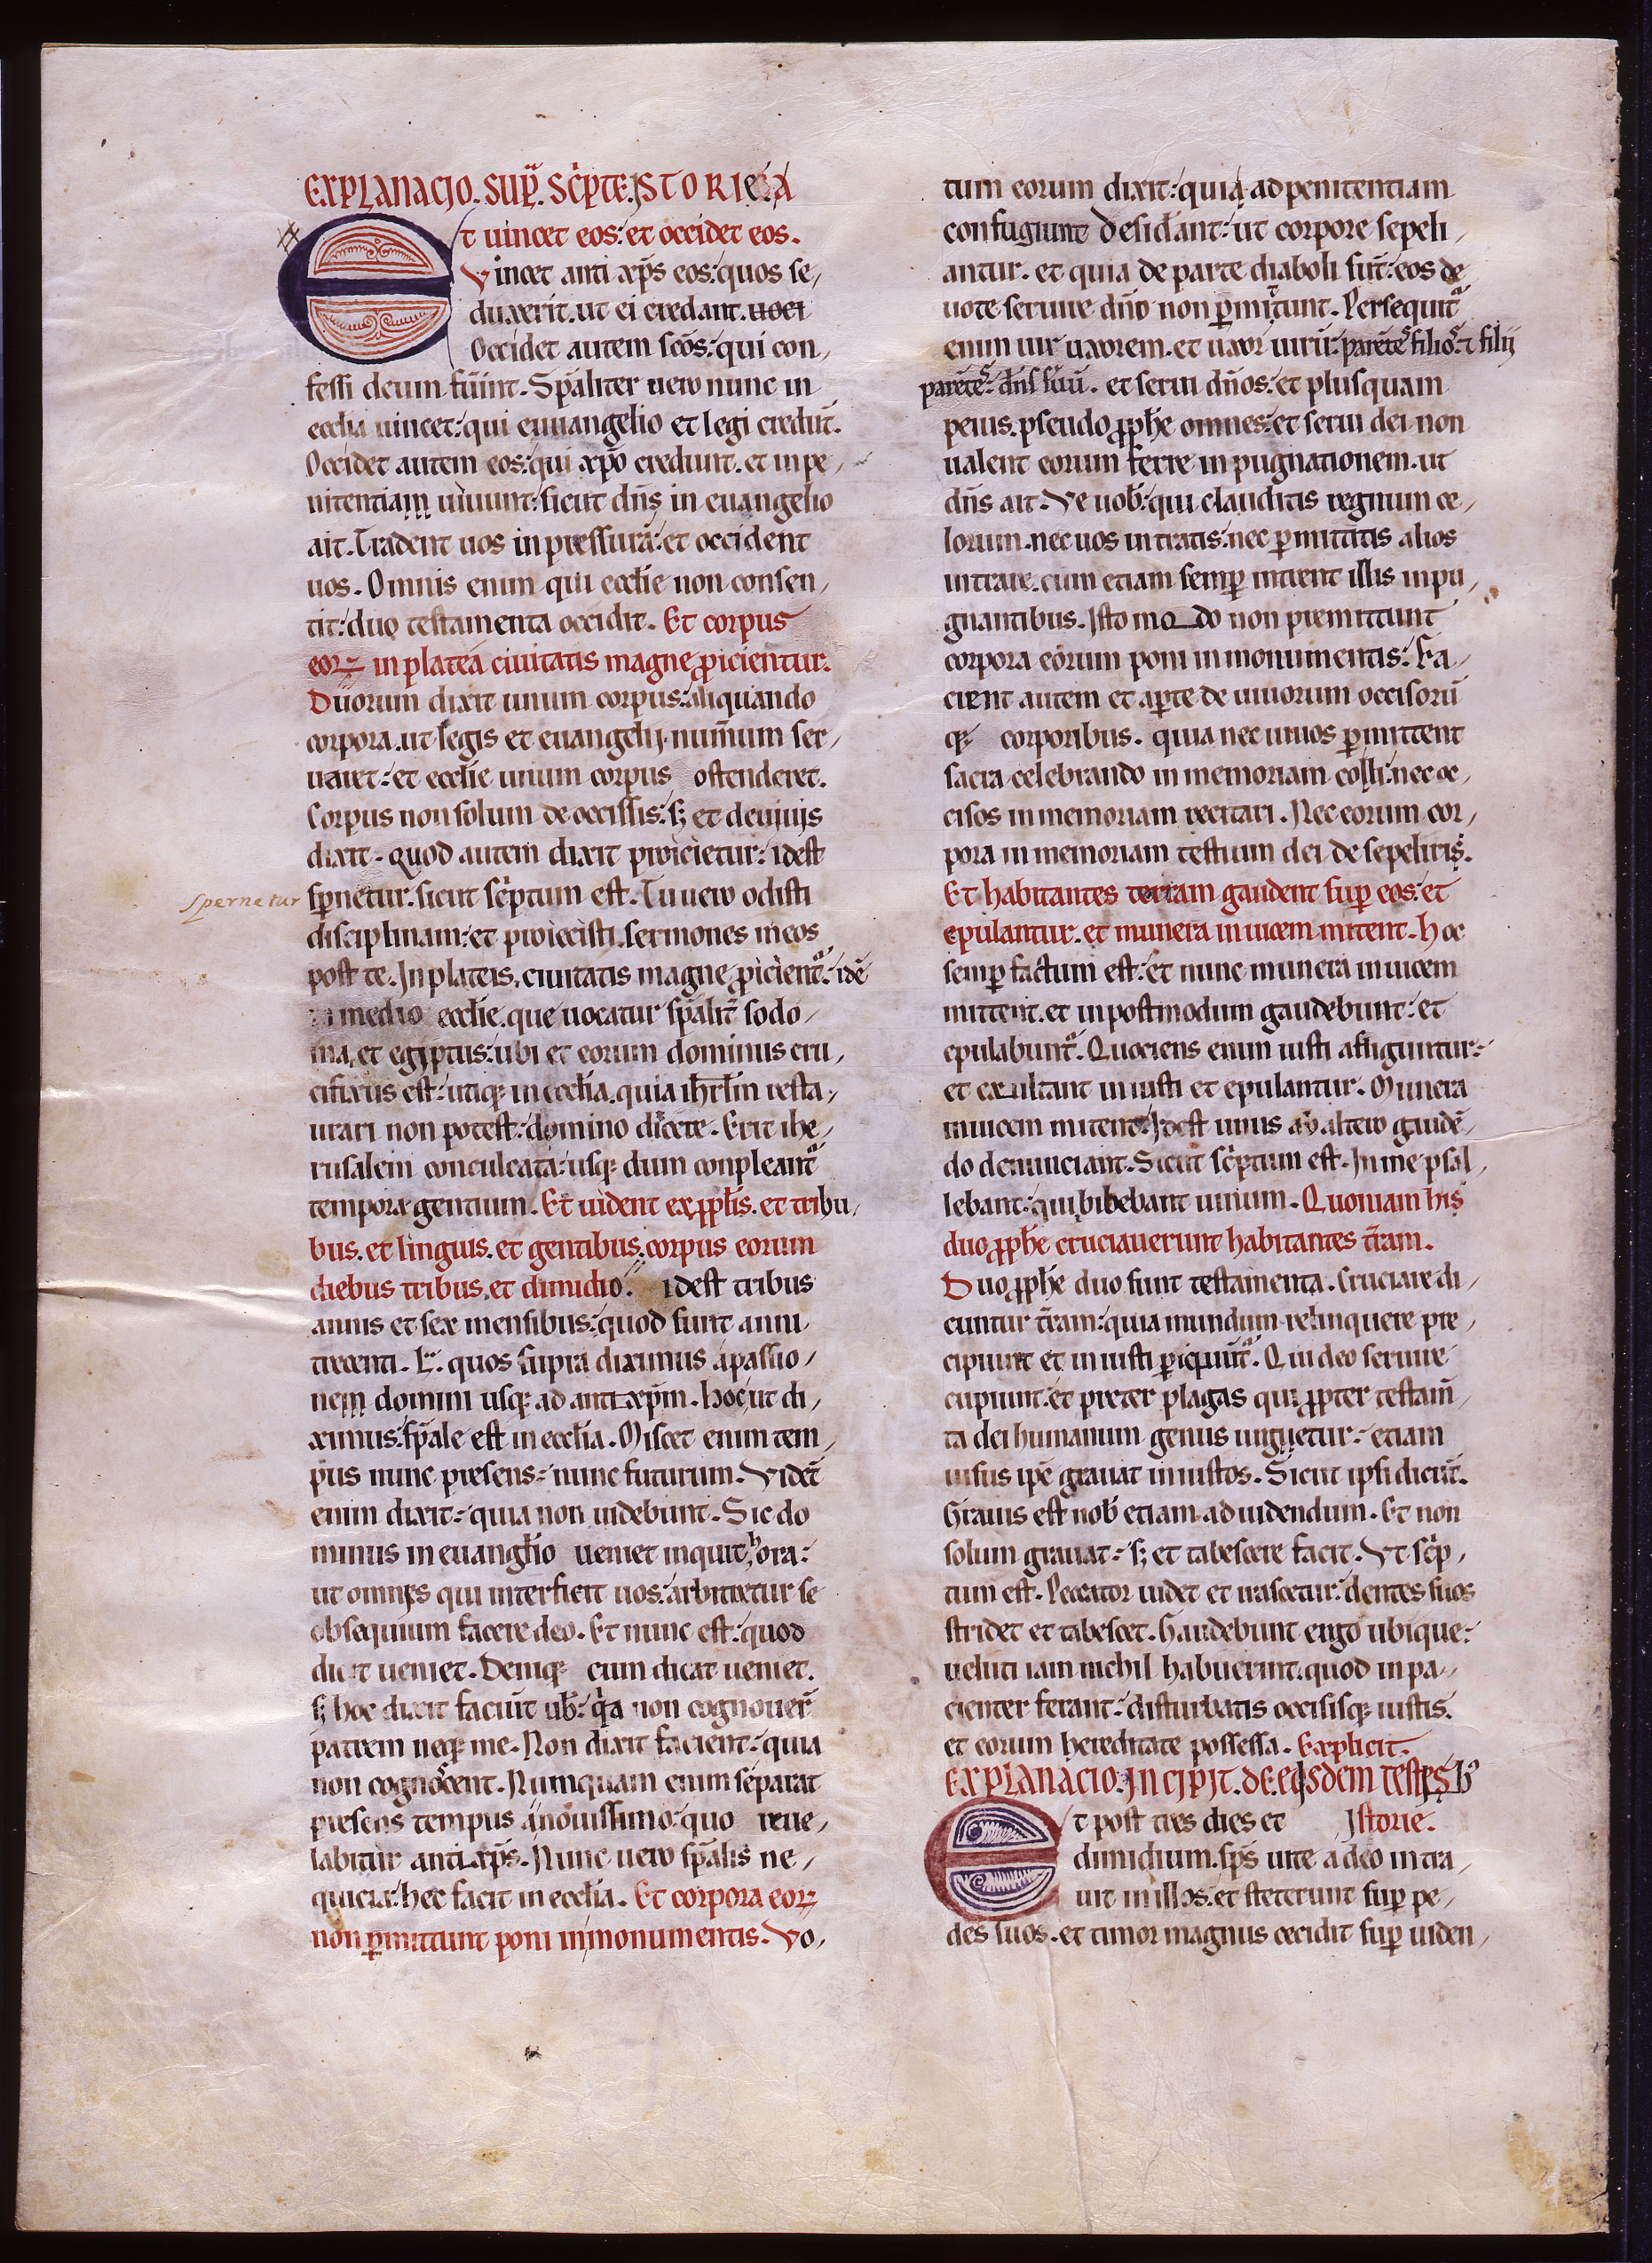 EXPLANACIO. SUP̄. SC̄PTE. ISTORIE
Et uincet eos: et occidet eos.
Vincet anti xp̄s eos: quos se,
duxerit. ut ei credant.
Occidet autem sc̄os: qui con,
fessi deum fuĩnt. Sp̄aliter uero nunc in
ecclia uincet: qui euuangelio et legi credut̄.
Occidet autem eos: qui xp̄o credunt. et in pe,
nitentiam uiuunt: sicut dn̄s in euangelio
ait. Tradent uos in pressurā: et occident
uos. Omnis enim qui ecclīe non consen,
tit: duo testamenta occidit. Et corpus
eoꝝ in platea ciuitatis magne ꝓicientur.
Duorum dixit unum corpus: aliquando
corpora. ut legis et euangelij. num̄um ser,
uaret: et ecclīe unum corpus ostenderet.
Corpus non solum de occissis: sꝫ et de uiuis
dixit. quod autem dixit proicietur: idest
sp̄netur. sicut sc̄ptum est. Tu uero odisti
spernetur
disciplinam: et proiecisti. sermones meos
post te. In plateis. ciuitatis magne ꝓicient̄: idē
in medio ecclīe. que uocatur sp̄alit̄ sodo,
ma. et egiptus: ubi et eorum dominus cru,
cifixus est: utiqꝫ in ecclīa. quia ihr̄lm̄ resta,
urari non potest: domino dicete. Erit ihe,
rusalem conculcata: usqꝫ dum conpleant̄
tempora gentium. Et uident ex ꝓplīs. et tribu,
bus. et linguis. et gentibus. corpus eorum
diebus tribus. et dimidio. idest tribus
annis et sex mensibus: quod sunt anni
trecenti. L. quos supra diximus a passio,
nem domini usqꝫ ad antixp̄m. hoc ut di,
ximus: sp̄ale est in ecclīa. Miscet enim tem,
pus nunc presens: nunc futurum. Videt̄
enim dixit: quia non uidebunt. Sic do
minus in euanglīo ueniet inquit hora:
ut omnes qui interficit uos: arbitretur se
obsequium facere deo. Et nunc est: quod
dicit ueniet. Deniqꝫ cum dicat ueniet.
sꝫ hoc dixit faciūt uob̄: qia non cognouer̄
patrem neqꝫ me. Non dixit facient: quia
non cognoscent. Numquam enim separat
presens tempus a nouissimo: quo reue,
labitur antixp̄s. Nunc uero sp̄alis ne,
quicia: hec facit in ecclīa. Et corpora eoꝝ
non ꝑmittunt poni in monumentis. Vo,
tum eorum dixit: quia ad penitentiam
confugiunt desid̄ant: ut corpore sepeli,
antur. et quia de parte diaboli sūt: eos de
uote seruire dn̄o non ꝑmittunt. Persequit̄
enim uir uxorem. et uxor uirū: parētes filios: ⁊ filij
parētes: dn̄s suū. et serui dn̄os: et plusquam
peius. pseudo ꝓphe omnes: et serui dei non
ualent eorum ferre in pugnationem. ut
dn̄s ait. Ve uob̄: qui clauditis regnum ce,
lorum. nec uos intratis: nec ꝑmititis alios
intrare. cum etiam semꝑ intrent illis inpu,
gnantibus. Isto modo non premittunt
corpora eorum poni in monumentis: Fa,
cient autem et aꝑte de uiuorum occisorū
qꝫ corporibus. quia nec uiuos ꝑmittent
sacra celebrando in memoriam colli: nec oc,
cisos in memoriam recitari. Nec eorum cor,
pora in memoriam testium dei de sepeliris.
Et habitantes terram gaudent suꝑ eos: et
epulantur. et munera inuicem mitent. hoc
semꝑ factum est: et nunc munera inuicem
mittent. et in postmodum gaudebunt: et
epulabunt̄. Quociens enim iusti affliguntur:
et exultant iniusti et epulantur. Munera
inuicem mitent: idest unus ab altero gaudē,
do denunciant. Sicut sc̄ptum est. In me psal,
lebant: qui bibebant uinum. Quoniam his
duo ꝓphe cruciauerunt habitantes tr̄am.
Duo ꝓphe duo sunt testamenta. Cruciare di,
cuntur tr̄am: quia mundum relinquere pre,
cipiunt et iniusti ꝑ. Qui deo seruire
cupiunt. et preter plagas qui ꝓpter testam̄
ta dei humanum genus ungu̧etur: etiam
uisus ipē grauat iniustos. Sicut ipsi dicūt.
Grauis est nob̄ etiam ad uidendum. Et non
solum grauat: sꝫ et tabescere facit. Vt sc̄p,
tum est. Peccator uidet et irascetur: dentes suos
stridet et tabescet. Gaudebunt ergo ubique:
ueluti iam nichil habuerint. quod inpa,
cienter ferant: disturbatis occisisqꝫ iustis.
et eorum hereditate possessa. Explicit.
EXPLANACIO. INCIPIT. DE EIUSDEM TESTES
Et post tres dies et Istorie.
dimidium. sp̄s uite a deo intra,
uit in illos. et steterunt suꝑ pe,
des suos. et timor magnus cecidit suꝑ uiden,